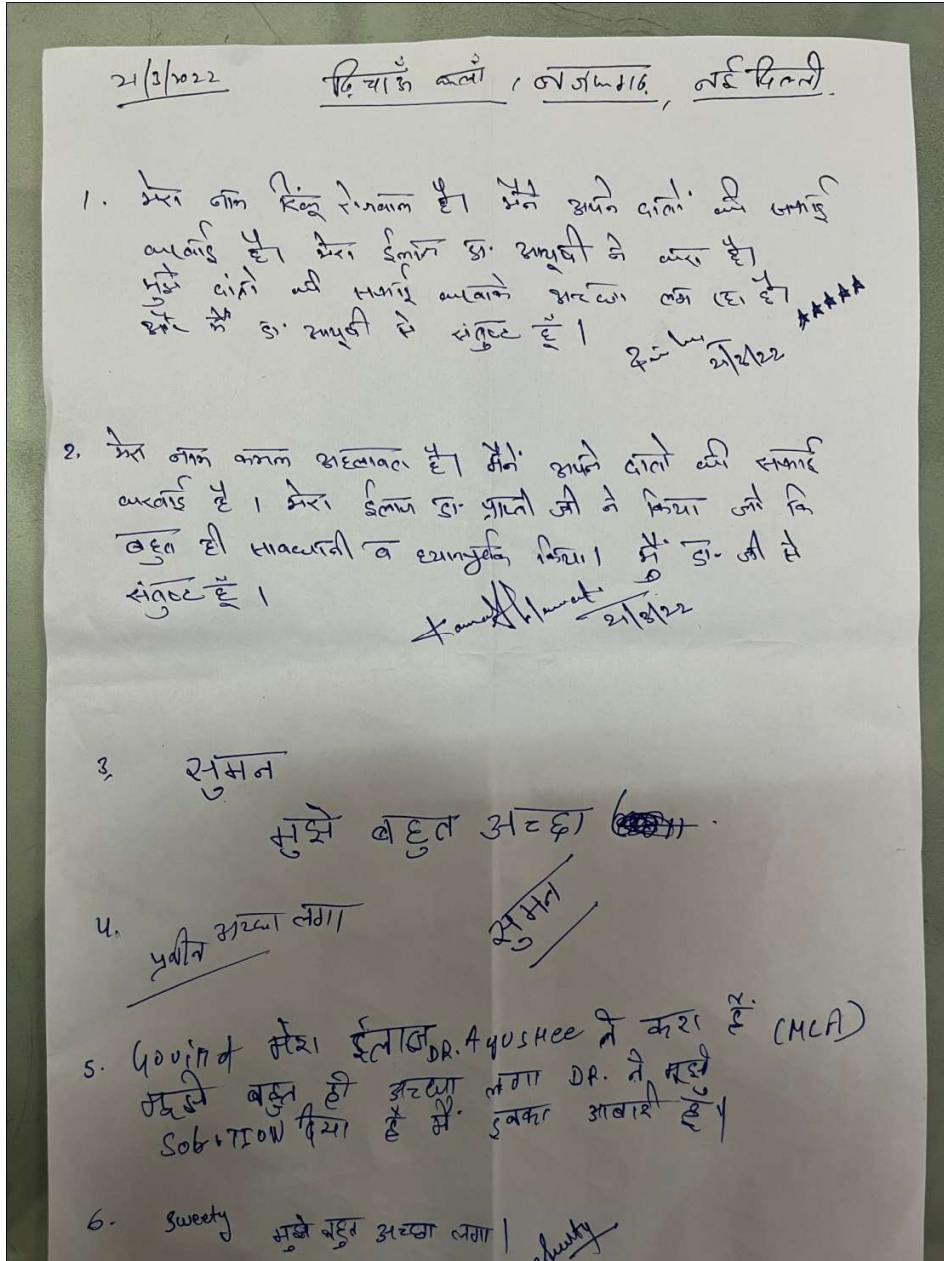 21/3/2022 दिचाऊँ कलाँ, नजफगढ़, नई दिल्ली.
1. मेरा नाम रिंकू रंगवाल है। मैंने अपने दातों की सफाई
करवाई है। मेरा ईलाज डा. आयुषी ने करा है।
मुझे दांतो की सफाई करवाके अच्छा लग रहा है।
और मैं डा. आयुषी से संतुष्ट हूँ।
★★★★★
21/3/22
2. मेरा नाम कमल अहलावत है। मैंनें अपने दातो की सफाई
करवाई है। मेरा ईलाज डा. प्राप्ती जी ने किया जो कि
बहुत ही सावधानी व ध्यानपूर्वक किया। मैं डा. जी से
संतुष्ट हूँ।
21/3/22
3, सुमन
मुझे बहुत अच्छा
सुमन
4. प्रवीन अच्छा लगा
5. Govind मेरा ईलाज DR. AyusHee ने करा है (MCA)
मुझे बहुत ही अच्छा लगा DR. ने मुझे
दिया है मैं इनका आबारी हूँ
6. Sweety मुझे बहुत अच्छा लगा।